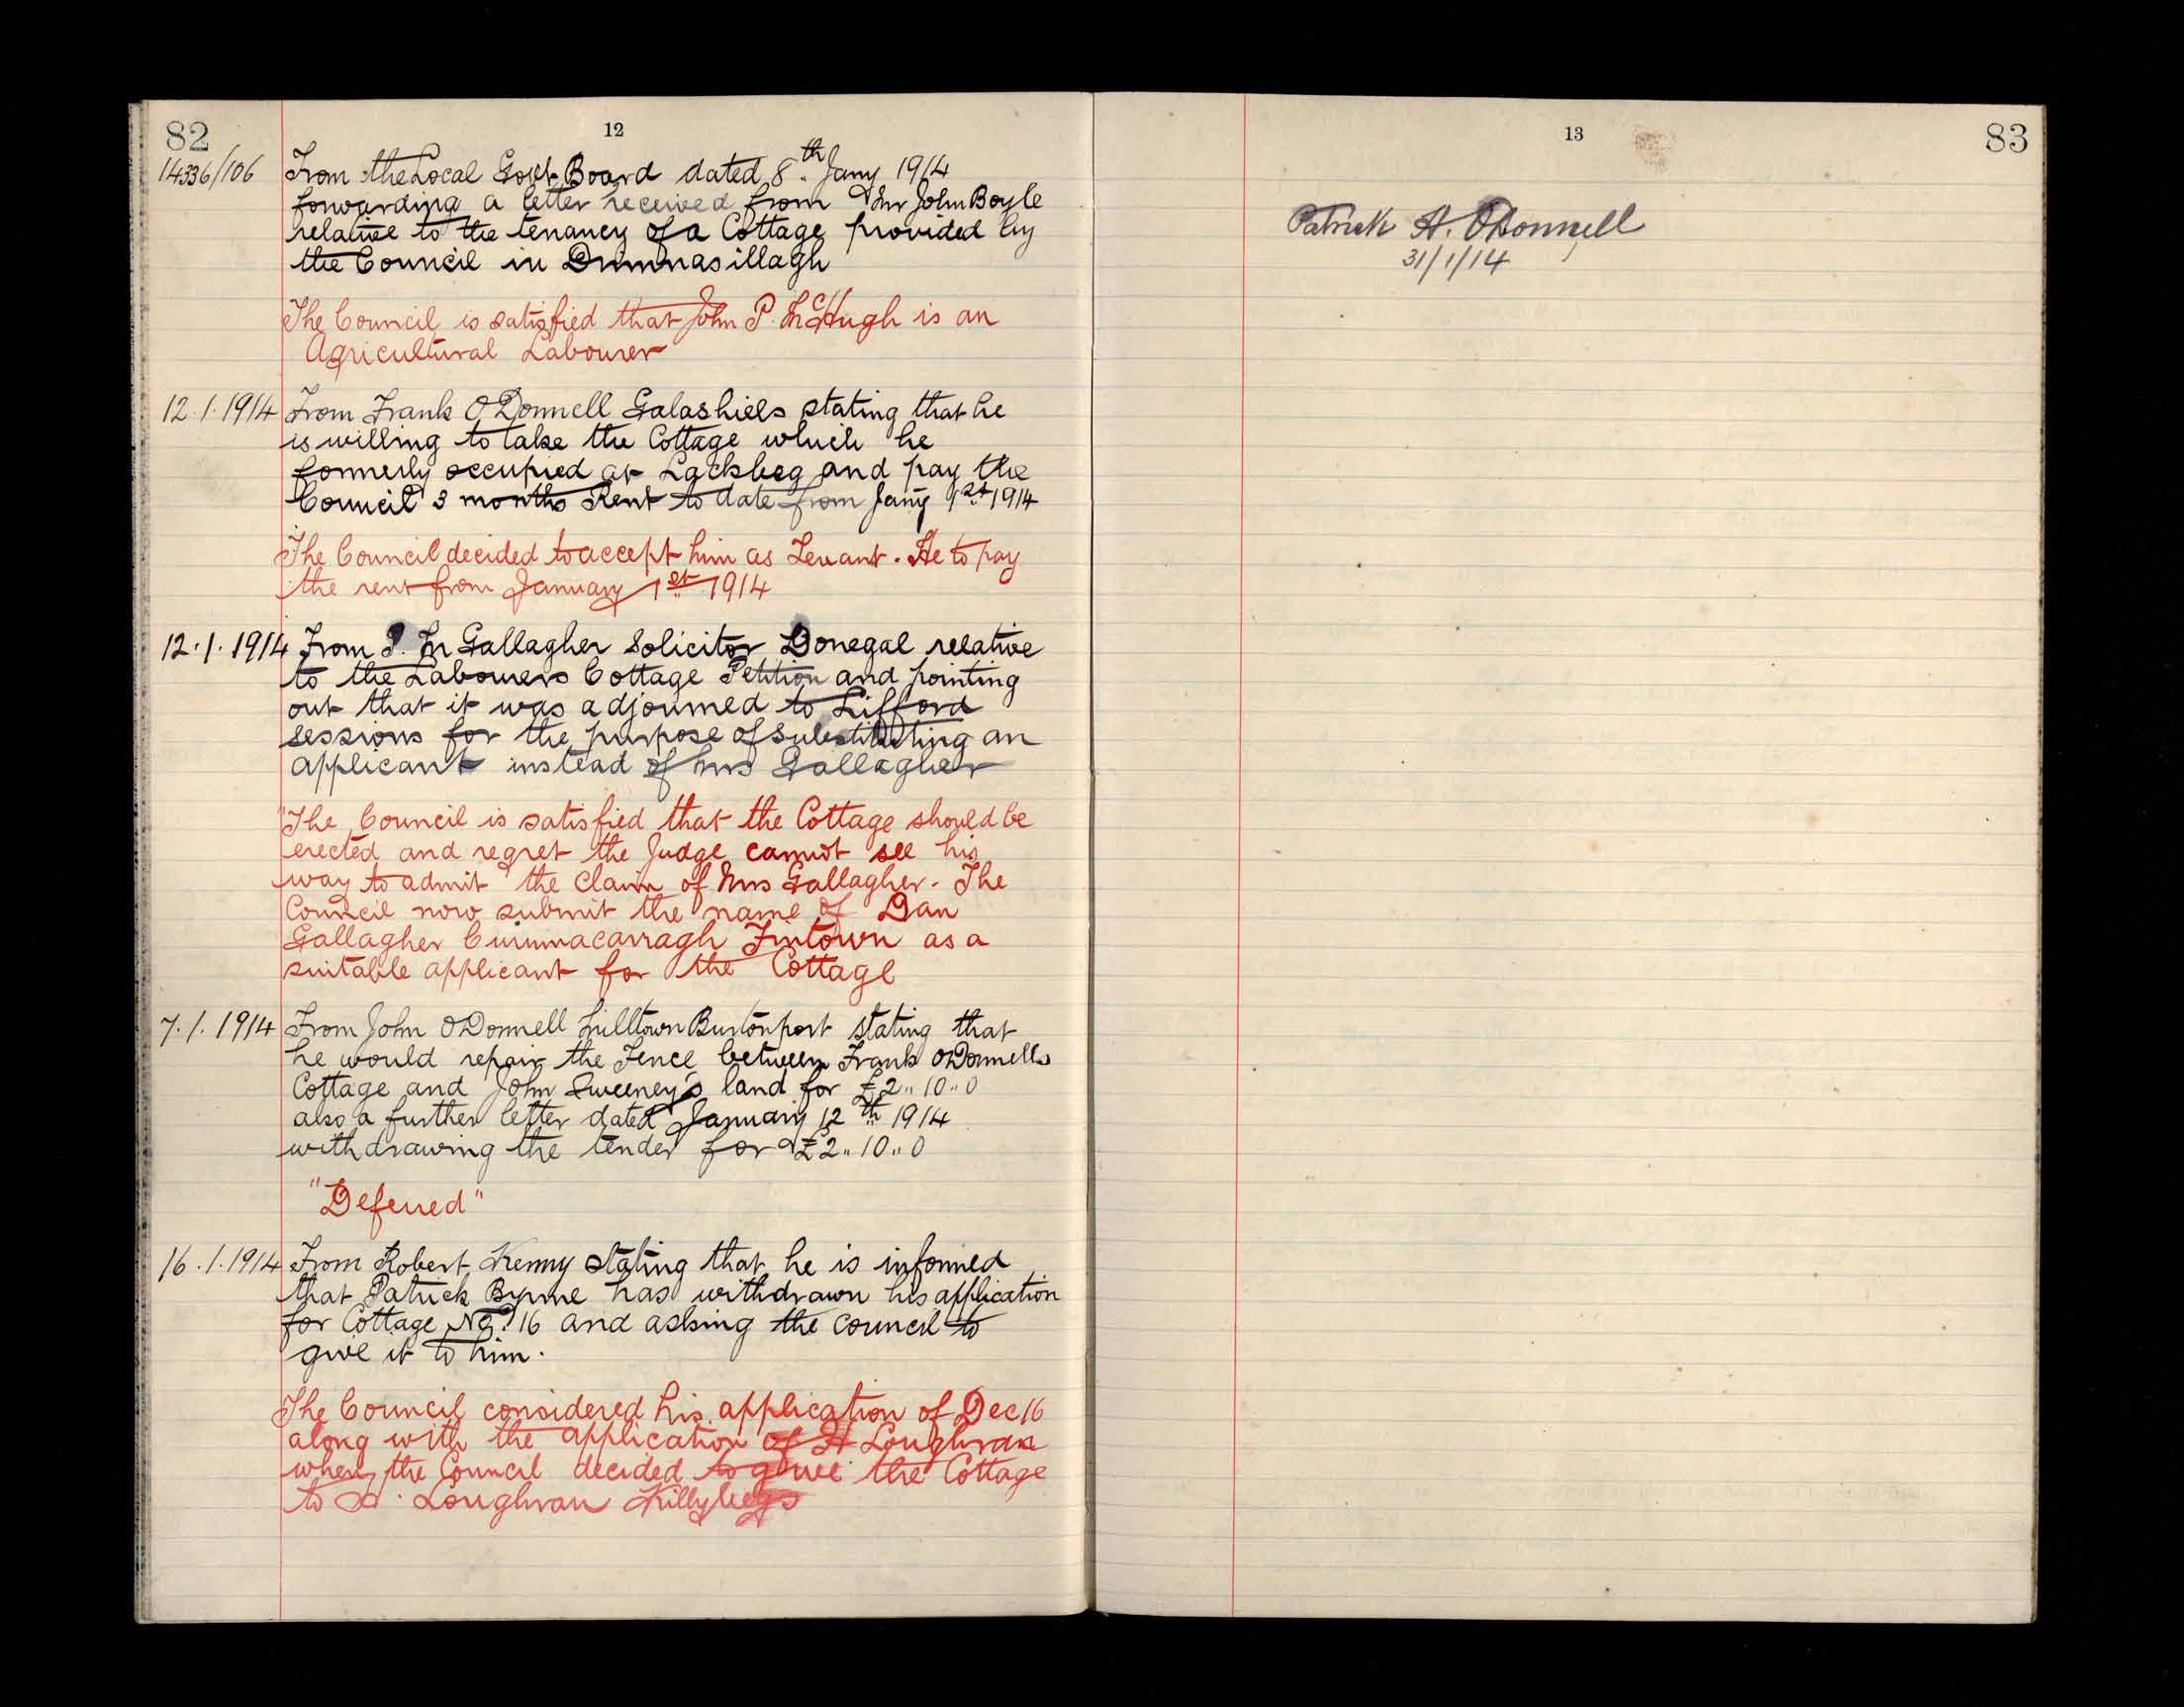 82
12
14336/106 From the Local Govt Board dated 8th Jany 1914
forwarding a letter received from Mr John Boyle
relative to the tenancy of a Cottage provided by
the Council in Drumnasillagh
The Council is satisfied that John P. McHugh is an
Agricultural Labourer
12.1.1914 From Frank O'Donnell Galashiels stating that he
is willing to take the Cottage which he
formerly occupied at Lackbeg and pay the
Council 3 months Rent to date from Jany 1st 1914
The Council decided to accept him as Tenant. He to pay
the rent from January 1st 1914
12.1.1914 From P. M Gallagher Solicitor Donegal relative
to the Labourers Cottage Petition and pointing
out that it was adjourned to Lifford
sessions for the purpose of substituting an
applicant instead of Mrs Gallagher
"The Council is satisfied that the Cottage should be
erected and regret the Judge cannot see his
way to admit the claim of Mrs Gallagher. The
Council now submit the name of Dan
Gallagher Fintown as a
suitable applicant for the Cottage
7.1.1914 From John O'Donnell Milltown Burtonport stating that
he would repair the Fence between Frank O'Donnells
Cottage and John Sweeney's land for £2.. 10.. 0
also a further letter dated January 12th 1914
withdrawing the tender for £2.. 10.. 0
"Deferred"
16.1.1914 From Robert Kenny stating that he is informed
that Patrick Byrne has withdrawn his application
for Cottage No. 16 and asking the Council to
give it to him.
The Council considered his application of Dec 16
along with the application of H Loughran
when the Council decided to give the Cottage
to H. Loughran Killybegs
13
83
Patrick A. O'Donnell
31/1/14